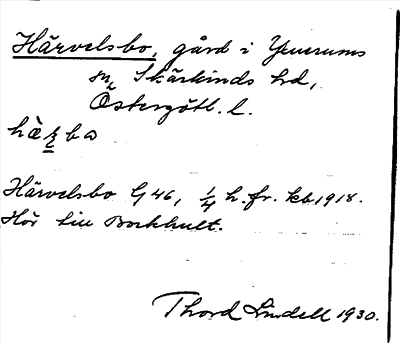 Härvelsbo, gård i Yxnerums
sn, Skärkinds hd,
Östergötl. l.
hæ̀r̥ba
Härvelsbo G 46, 1/4 h. fr. kb 1918.
Hör till Borkhult.
Thord Lindell 1930.